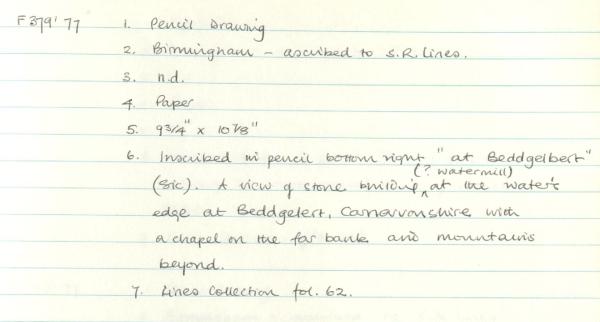 F379'77 1. Pencil Drawing
2. Birmingham – ascribed to S.R. Lines.
3. n.d.
4. Paper
5. 9 3/4" x 10 7/8"
6. Inscribed in pencil bottom right "at Beddgelbert"
(sic). A view of stone building ^(? watermill) at the water's
edge at Beddgelert, Carnarvonshire with
a chapel on the far bank and mountains
beyond.
7. Lines Collection fol. 62.